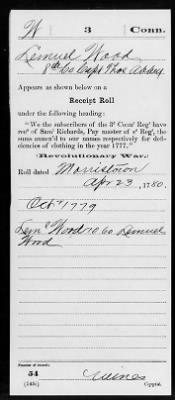 W 3 Conn.
Lemuel Wood
8th Co Capt Thos Abbey
Appears as shown below on a
Receipt Roll
under the following heading:
"We the subscribers of the 3d Conn' Reg' have
rec' of Sam' Richards, Pay master of s' Reg', the
sums annexed to our names respectively for defi-
ciencies of clothing in the year 1777."
Revolutionary War.
Roll dated Morristown
Apr 23, 1780.
Oct 1779
Lem' Wood 10 60 Lemuel
Wood
Number of record:
54
Copyist.